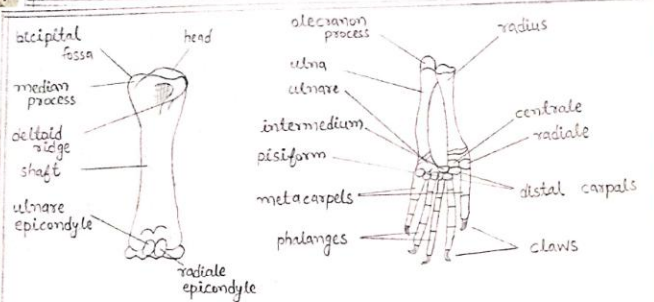 bicipital
fossa
head
median
process
deltoid
ridge
shaft
ulnare
epicondyle
radiale
epicondyle
olecranon
process
radius
ulna
ulnare
intermedium
pisiform
metacarpels
phalanges
centrale
radiale
distal carpals
claws